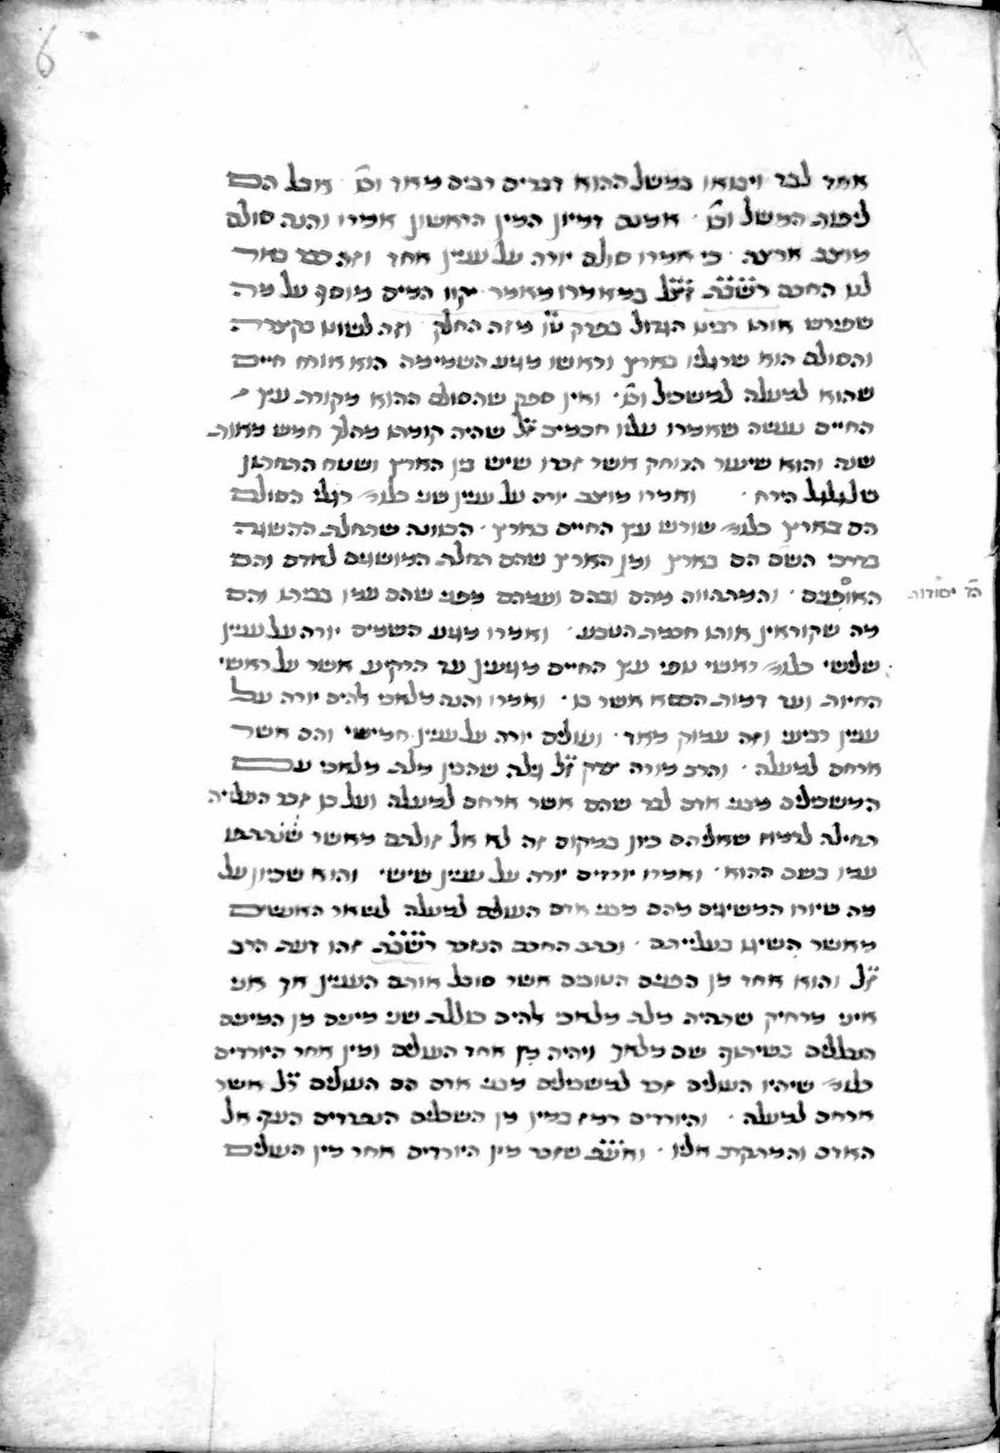 אחד לבד ויבואו במשל ההוא דברים רבים מאד וכו' · אבל הם
ליפות המשל וכו' · אמנם דמיון המין הראשון אמרו והנה סולם
מוצב ארצה · כי אמרו סולם יורה על עניין אחד וזה כבר באר
לנו החכם רשב"ת ז"ל במאמרו מאמר יקוו המים מוסף על מה
שפירש אותו רבינו הגדול בפרק ט"ו מזה החלק וזה לשונו בקצרה
והסולם הוא שרגליו בארץ וראשו מגיע השמימה הוא אורח חיים
שהוא למעלה למשכיל וכו' · ואין ספק שהסולם ההוא מקורת עץ
החיים נעשה שאמרו עליו חכמים ז"ל שהיה קומתו מהלך חמש מאות
שנה והוא שיעור המרחק אשר זכרו שיש בין הארץ ושטח התחתון
שלגלגל הירח · ואמרו מוצב יורה על עניין שני כלומ' רגלי הסולם
הם בארץ כלומ' שורש עץ החיים בארץ · הכוונה שתחלת ההשגה
בדרכי השם הם בארץ ומן הארץ שהם תחלת המושגים לאדם והם
האופנים · והמתהווה מהם ובהם ועמהם מפני שהם עמו בביתו והם
הד' יסודות
מה שקוראין אותו חכמת הטבע · ואמרו מגיע השמים יורה על עניין
שלישי כלומ' ראשי ענפי עץ החיים מגיעין עד הרקיע אשר על ראשי
החיות ועד דמות הכסא אשר בו · ואמרו והנה מלאכי להים יורה על
עניין רביעי וזה עמוק מאד · ועולים יורה על עניין חמישי והם אשר
ארחם למעלה · והרב מורה צדק ז"ל גילה שהבין מלת מלאכי עם
המשכילים מבני אדם לבד שהם אשר ארחם למעלה ועל כן זכר העלייה
תחילה לרמוז שאליהם כיון במקום זה לא אל זולתם מאשר שיתהוו
עמו בשם ההוא · ואמרו יורדים יורה על עניין שישי והוא שכיון על
מה שיורו המשיגים מהם מבני אדם העולים למעלה לשאר האנשים
מאשר השיגו בעלייתם · וכתב החכם הנזכר רשב"ת זהו דעת הרב
ז"ל והוא אחד מן הפנים הטובים אשר סובל אותם העניין אך אני
איני מרחיק שתהיה מלת מלאכי להים כוללת שני מינים מן המינים
הנכללים בשיתוף שם מלאך ויהיה מין אחד העולים ומין אחר היורדים
כלומ' שיהיו העולים זכר למשכילים מבני אדם הם העולים ז"ל אשר
ארחם למעלה · והיורדים רמז במין מן השכלים הנפרדים השף אל
האדם והמתקרב אליו · ואע"פ שזכר מין היורדים אחר מין העולים